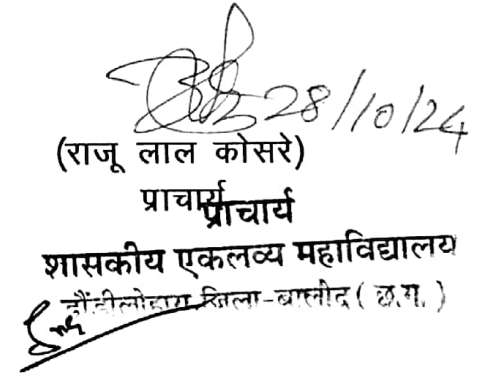 28/10/24
(राजू लाल कोसरे)
प्राचार्य प्राचार्य
शासकीय एकलव्य महाविद्यालय
डौंडीलोहारा जिला-बालोद ( छ.ग. )